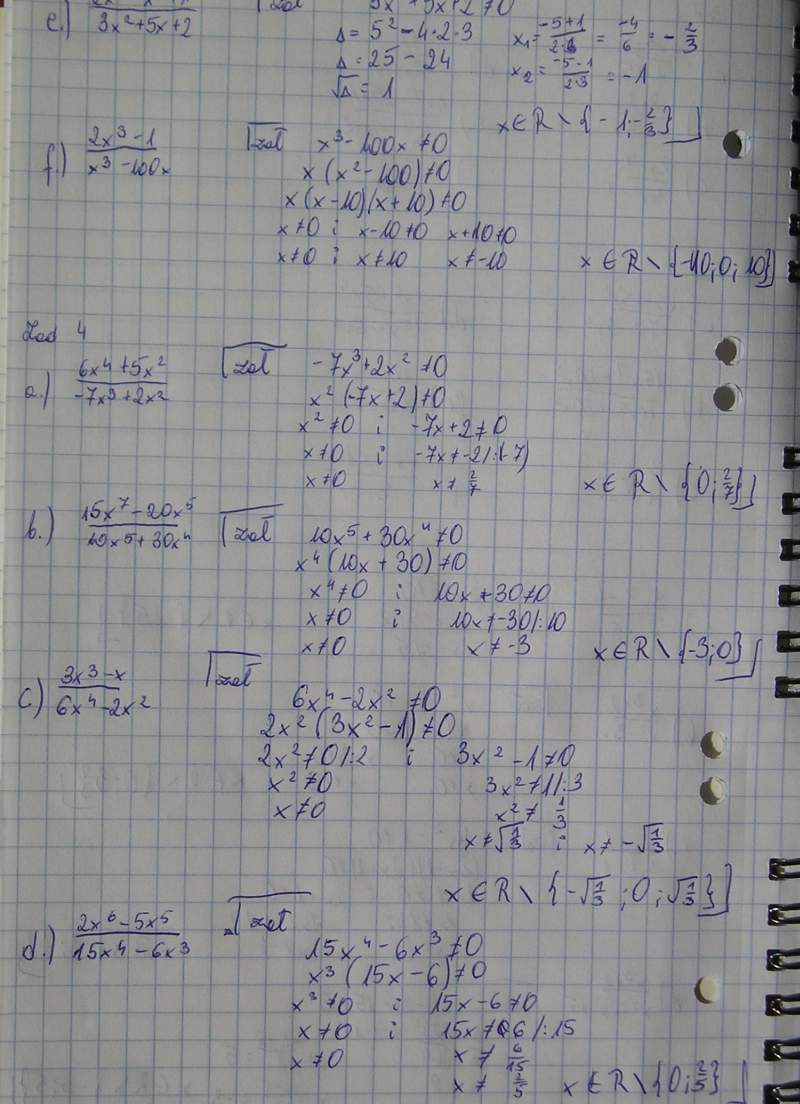 e.) 3x²+5x+2
Δ = 5² - 4·2·3
Δ = 25 - 24
√Δ = 1
x₁ = (-5+1)/(2·3) = -4/6 = -2/3
x₂ = (-5-1)/(2·3) = -1
x ∈ R \ {-1; -2/3}
f.) (2x³-1)/(x³-100x) zał x³-100x ≠ 0
x(x²-100) ≠ 0
x(x-10)(x+10) ≠ 0
x ≠ 0 i x-10 ≠ 0 x+10 ≠ 0
x ≠ 0 i x ≠ 10 x ≠ -10 x ∈ R \ {-10; 0; 10}
Zad 4
a.) (6x⁴+5x²)/(-7x³+2x²) zał -7x³+2x² ≠ 0
x²(-7x+2) ≠ 0
x² ≠ 0 i -7x+2 ≠ 0
x ≠ 0 i -7x ≠ -2 /:(-7)
x ≠ 0 x ≠ 2/7 x ∈ R \ {0; 2/7}
b.) (15x⁷-20x⁵)/(10x⁵+30x⁴) zał 10x⁵+30x⁴ ≠ 0
x⁴(10x+30) ≠ 0
x⁴ ≠ 0 i 10x+30 ≠ 0
x ≠ 0 i 10x ≠ -30 /:10
x ≠ 0 x ≠ -3 x ∈ R \ {-3; 0}
c.) (3x³-x)/(6x⁴-2x²) zał
6x⁴-2x² ≠ 0
2x²(3x²-1) ≠ 0
2x² ≠ 0 /:2 i 3x²-1 ≠ 0
x² ≠ 0 3x² ≠ 1 /:3
x ≠ 0 x² ≠ 1/3
x ≠ √(1/3) i x ≠ -√(1/3)
x ∈ R \ {-√(1/3); 0; √(1/3)}
d.) (2x⁶-5x⁵)/(15x⁴-6x³) zał
15x⁴-6x³ ≠ 0
x³(15x-6) ≠ 0
x³ ≠ 0 i 15x-6 ≠ 0
x ≠ 0 i 15x ≠ 6 /:15
x ≠ 0 x ≠ 6/15
x ≠ 2/5 x ∈ R \ {0; 2/5}